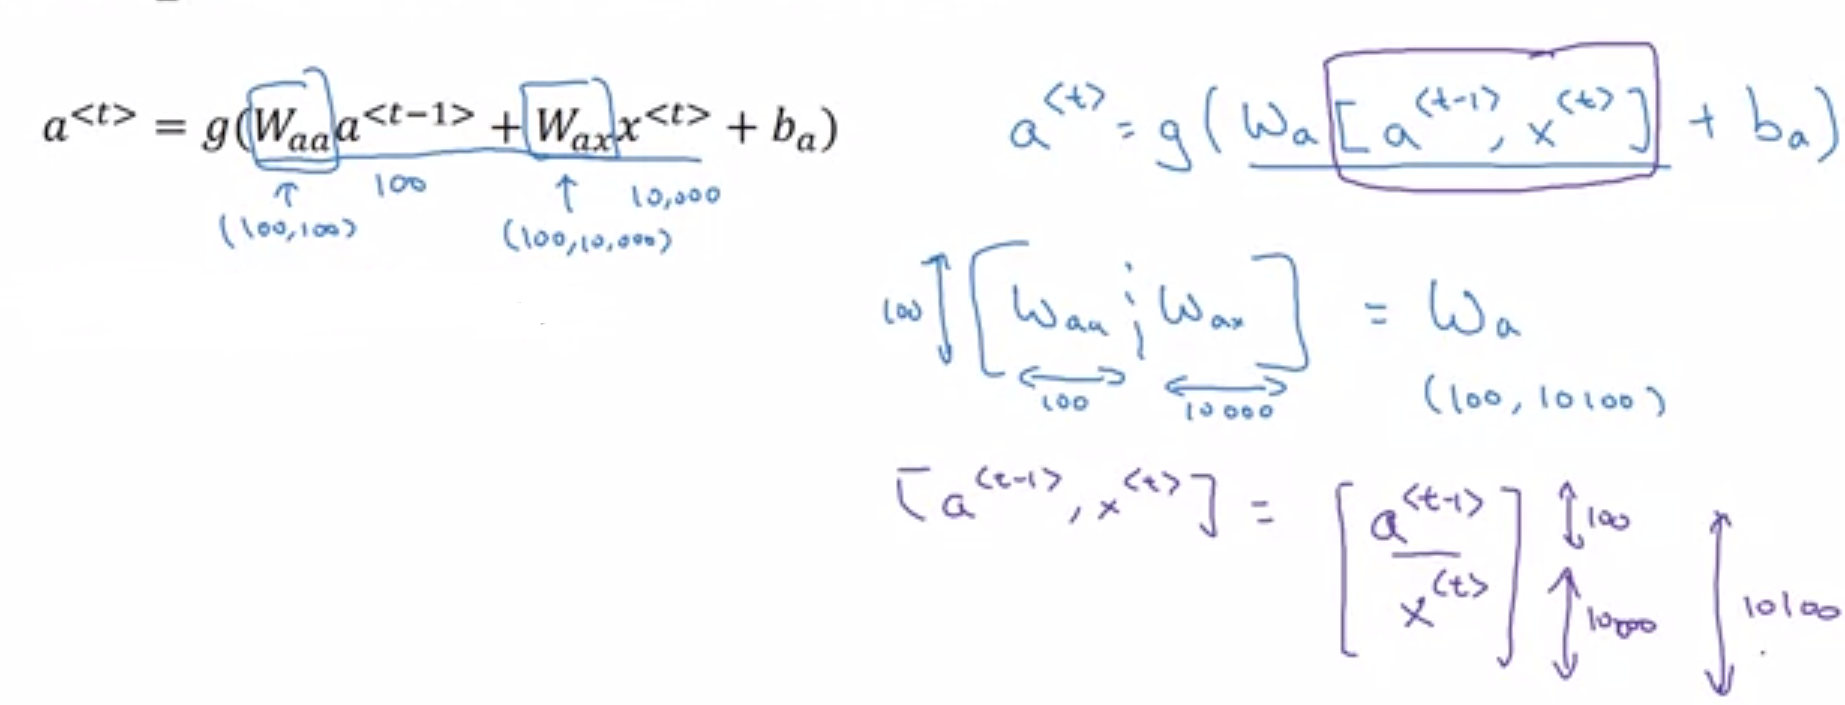 a^{<t>} = g(W_{aa}a^{<t-1>} + W_{ax}x^{<t>} + b_a)
100
10,000
(100,100)
(100,10,000)
a^{<t>} = g(W_a[a^{<t-1>}, x^{<t>}] + b_a)
100 [W_{aa} ¦ W_{ax}] = W_a
100
10000
(100, 10100)
[a^{<t-1>}, x^{<t>}] = [a^{<t-1>} 100
x^{<t>}] 10000
10100